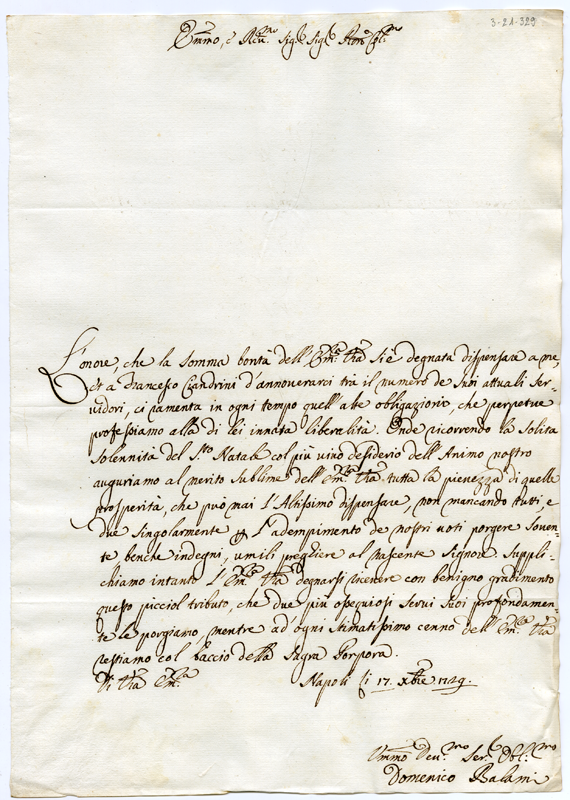 3-21-329
Emmo, e Revmo Sigr Sigr
L'onore, che la somma bontà dell'Emza Vra si è degnata dispensare a me,
et a Francesco Ciandrini d'annoverarci trà il numero de Suoi attuali Ser-
vidori, ci ramenta in ogni tempo quell'alte obligazioni, che perpetue
professiamo alla di lei innata liberalità. Onde ricorrendo la Solita
Solennità del Sto Natale col più vivo desiderio dell'Animo nostro
auguriamo al merito Sublime dell'Emza Vra tutta la pienezza di quelle
prosperità, che può mai l'Altissimo dispensare, non mancando tutti, e
due singolarmente l'adempimento de nostri voti porgere Soven-
te benche indegni, umili preghiere al nascente Signore. Suppli-
chiamo intanto l'Emza Vra degnarsi ricevere con benigno gradimento
questo picciol tributo, che due più ossequiosi Servi Suoi profondamen-
te le porgiamo, mentre ad'ogni stimatissimo cenno dell'Emza Vra
restiamo col baccio della Sagra Porpora.
Di Vra Emza Napoli li 17. Xbre 1729.
Ummo Devmo Serre Oblmo
Domenico Balami